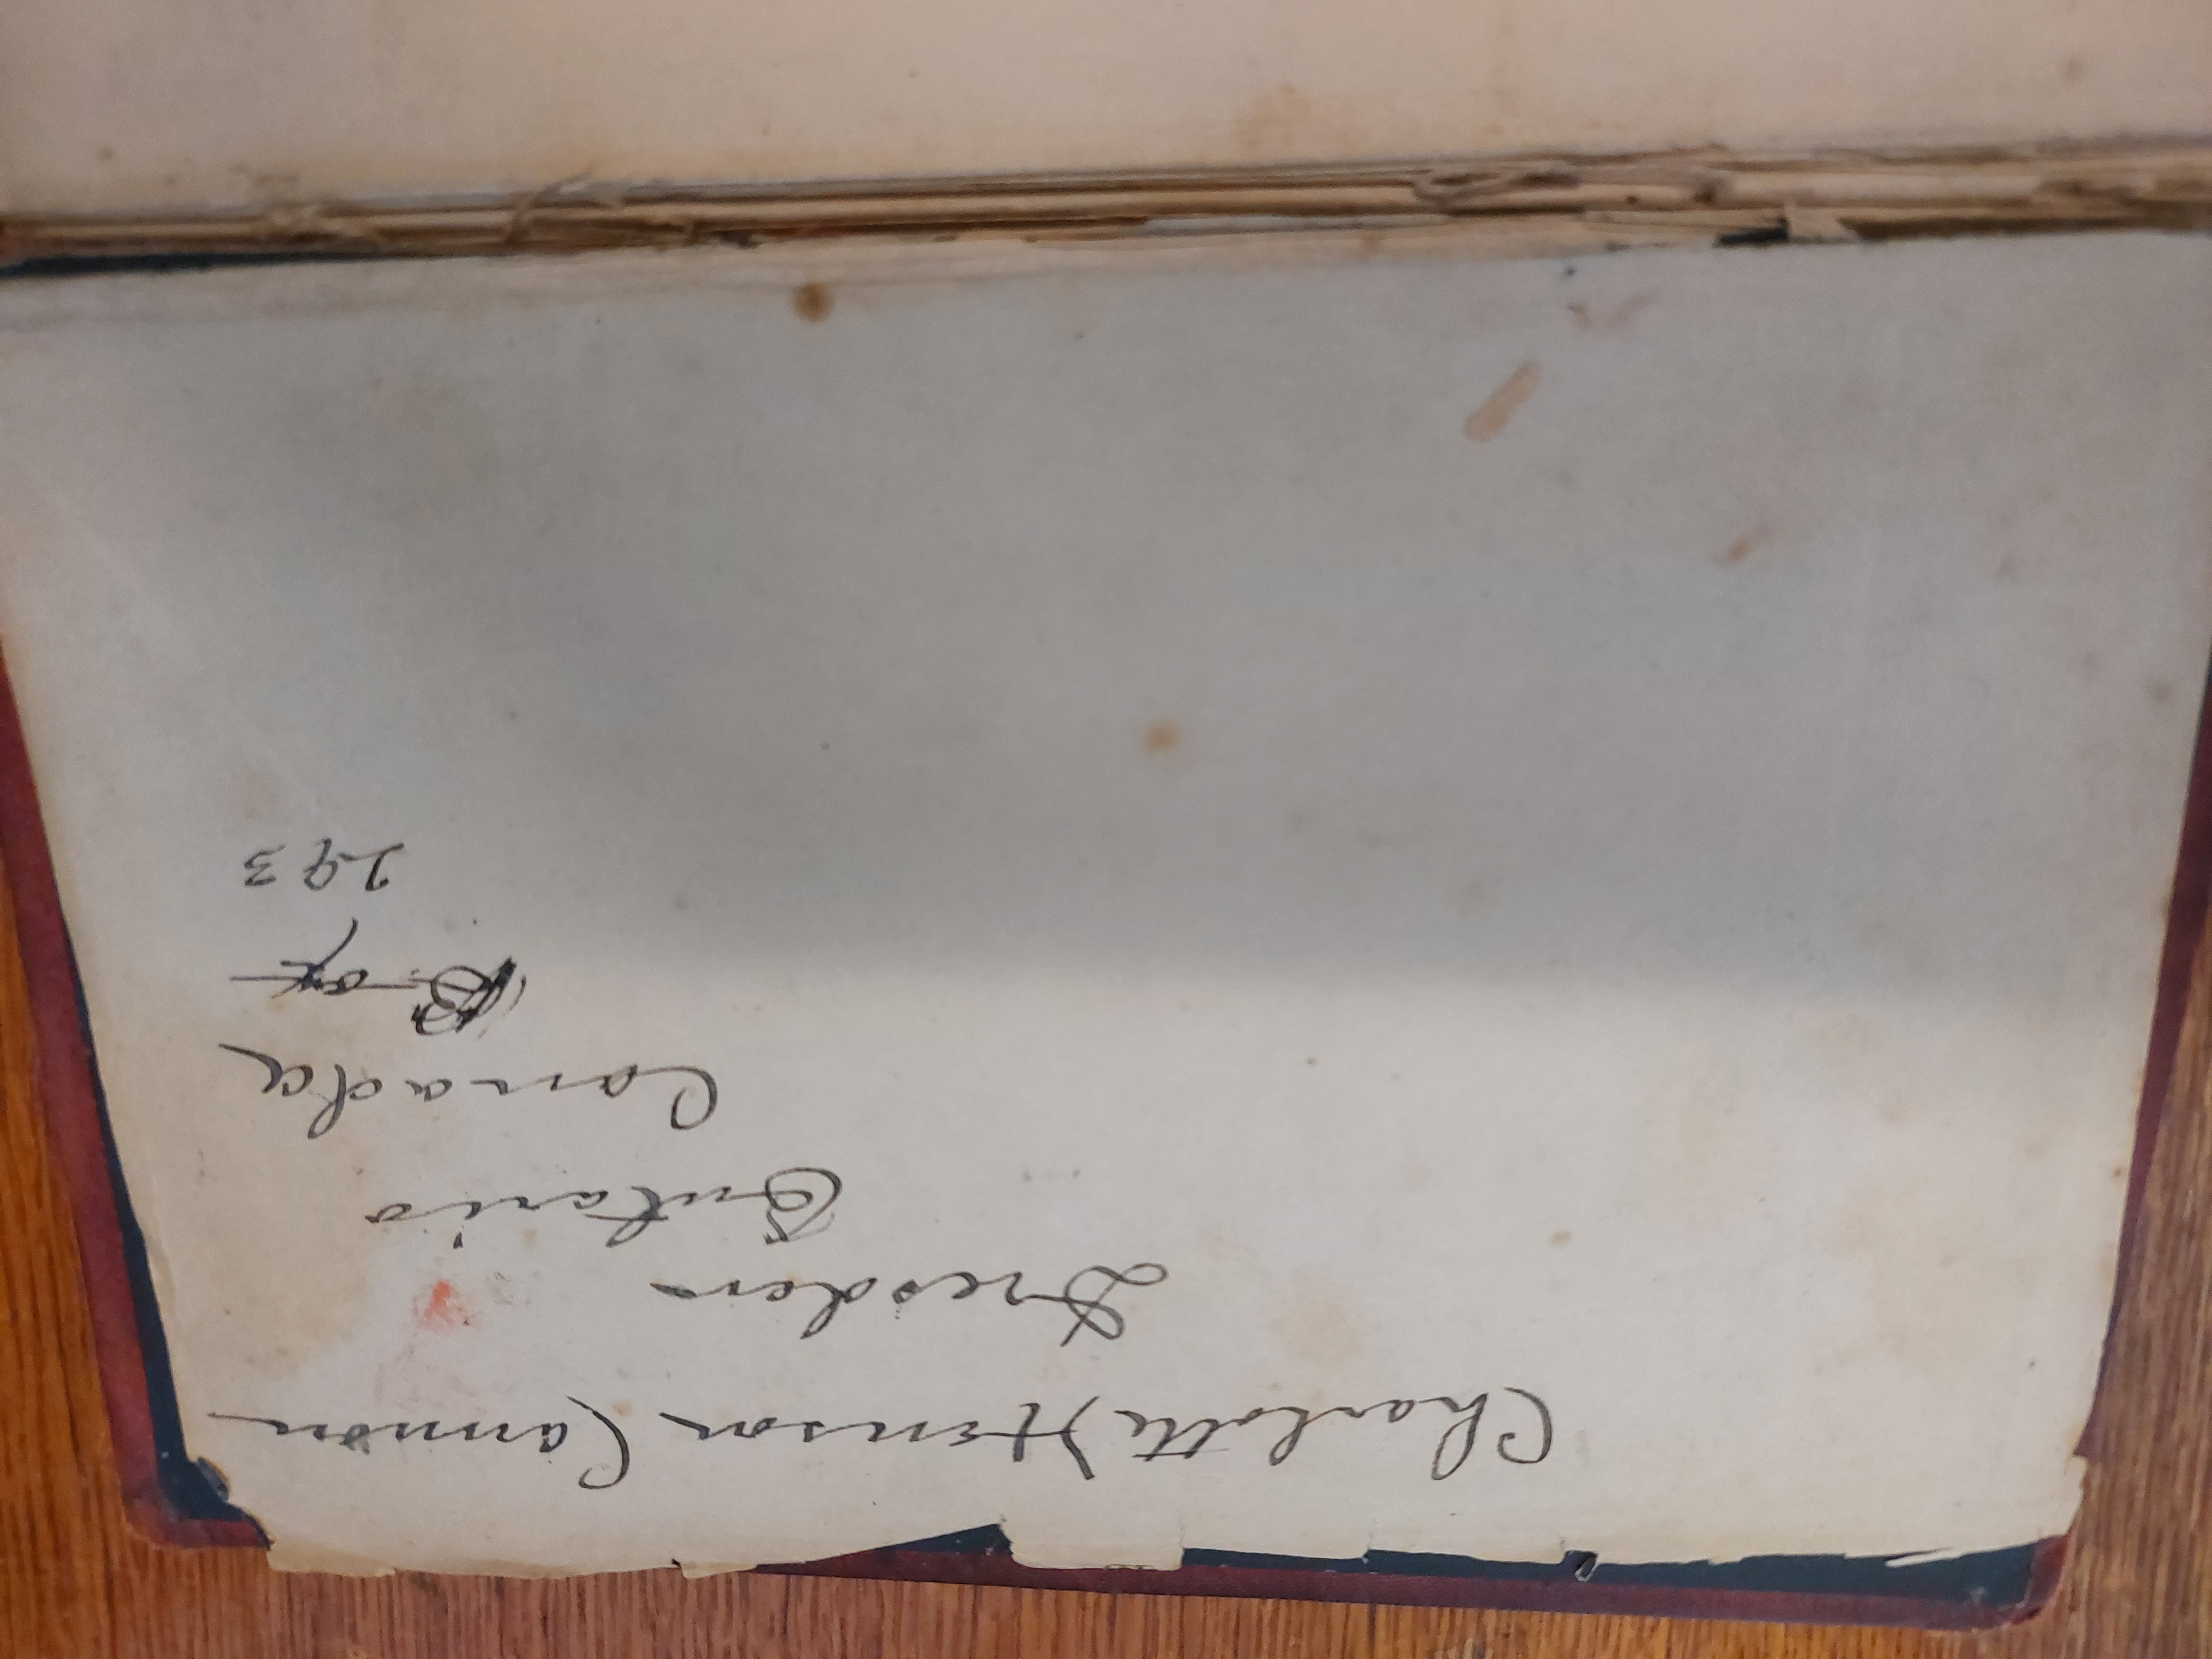 Charlotte Henson Cannon
Dresden
Ontario
Canada
Box
293